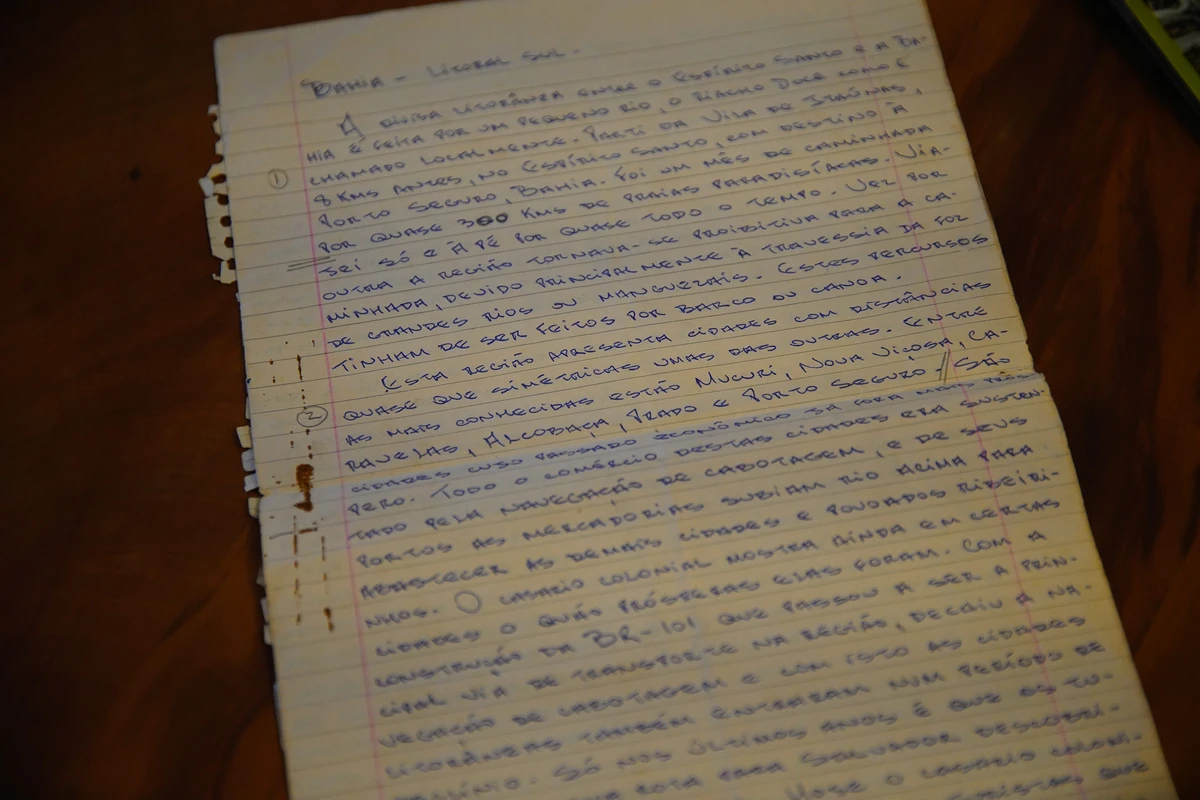 BAHIA - LITORAL SUL.
A DIVISA LITORÂNEA ENTRE O ESPÍRITO SANTO E A BA-
HIA É FEITA POR UM PEQUENO RIO, O RIACHO DOCE COMO É
CHAMADO LOCALMENTE. PARTI DA VILA DE ITAÚNAS,
1 8 KMS ANTES, NO ESPÍRITO SANTO, COM DESTINO À
PORTO SEGURO, BAHIA. FOI UM MÊS DE CAMINHADA
POR QUASE 300 KMS DE PRAIAS PARADISÍACAS. VIA-
JEI SÓ E À PÉ POR QUASE TODO O TEMPO. VEZ POR
OUTRA A REGIÃO TORNAVA-SE PROIBITIVA PARA A CA-
MINHADA, DEVIDO PRINCIPALMENTE À TRAVESSIA DA FOZ
DE GRANDES RIOS OU MANGUEZAIS. ESTES PERCURSOS
TINHAM DE SER FEITOS POR BARCO OU CANOA.
ESTA REGIÃO APRESENTA CIDADES COM DISTÂNCIAS
2 QUASE QUE SIMÉTRICAS UMAS DAS OUTRAS. ENTRE
AS MAIS CONHECIDAS ESTÃO MUCURI, NOVA VIÇOSA, CA-
RAVELAS, ALCOBAÇA, PRADO E PORTO SEGURO. // SÃO
CIDADES CUJO PASSADO ECONÔMICO JÁ FORA MAIS PRÓS-
PERO. TODO O COMÉRCIO DESTAS CIDADES ERA SUSTEN-
TADO PELA NAVEGAÇÃO DE CABOTAGEM, E DE SEUS
PORTOS AS MERCADORIAS SUBIAM RIO ACIMA PARA
ABASTECER AS DEMAIS CIDADES E POVOADOS RIBEIRI-
NHOS. O CASARIO COLONIAL MOSTRA AINDA EM CERTAS
CIDADES O QUÃO PRÓSPERAS ELAS FORAM. COM A
CONSTRUÇÃO DA BR-101 QUE PASSOU A SER A PRIN-
CIPAL VIA DE TRANSPORTE NA REGIÃO, DECAIU A NA-
VEGAÇÃO DE CABOTAGEM E COM ISTO AS CIDADES
LITORÂNEAS TAMBÉM ENTRARAM NUM PERÍODO DE
DECLÍNIO. SÓ NOS ÚLTIMOS ANOS É QUE OS TU-
ROTA PARA SALVADOR DESCOBRI-
HOJE O CASARIO COLONI-
QUE